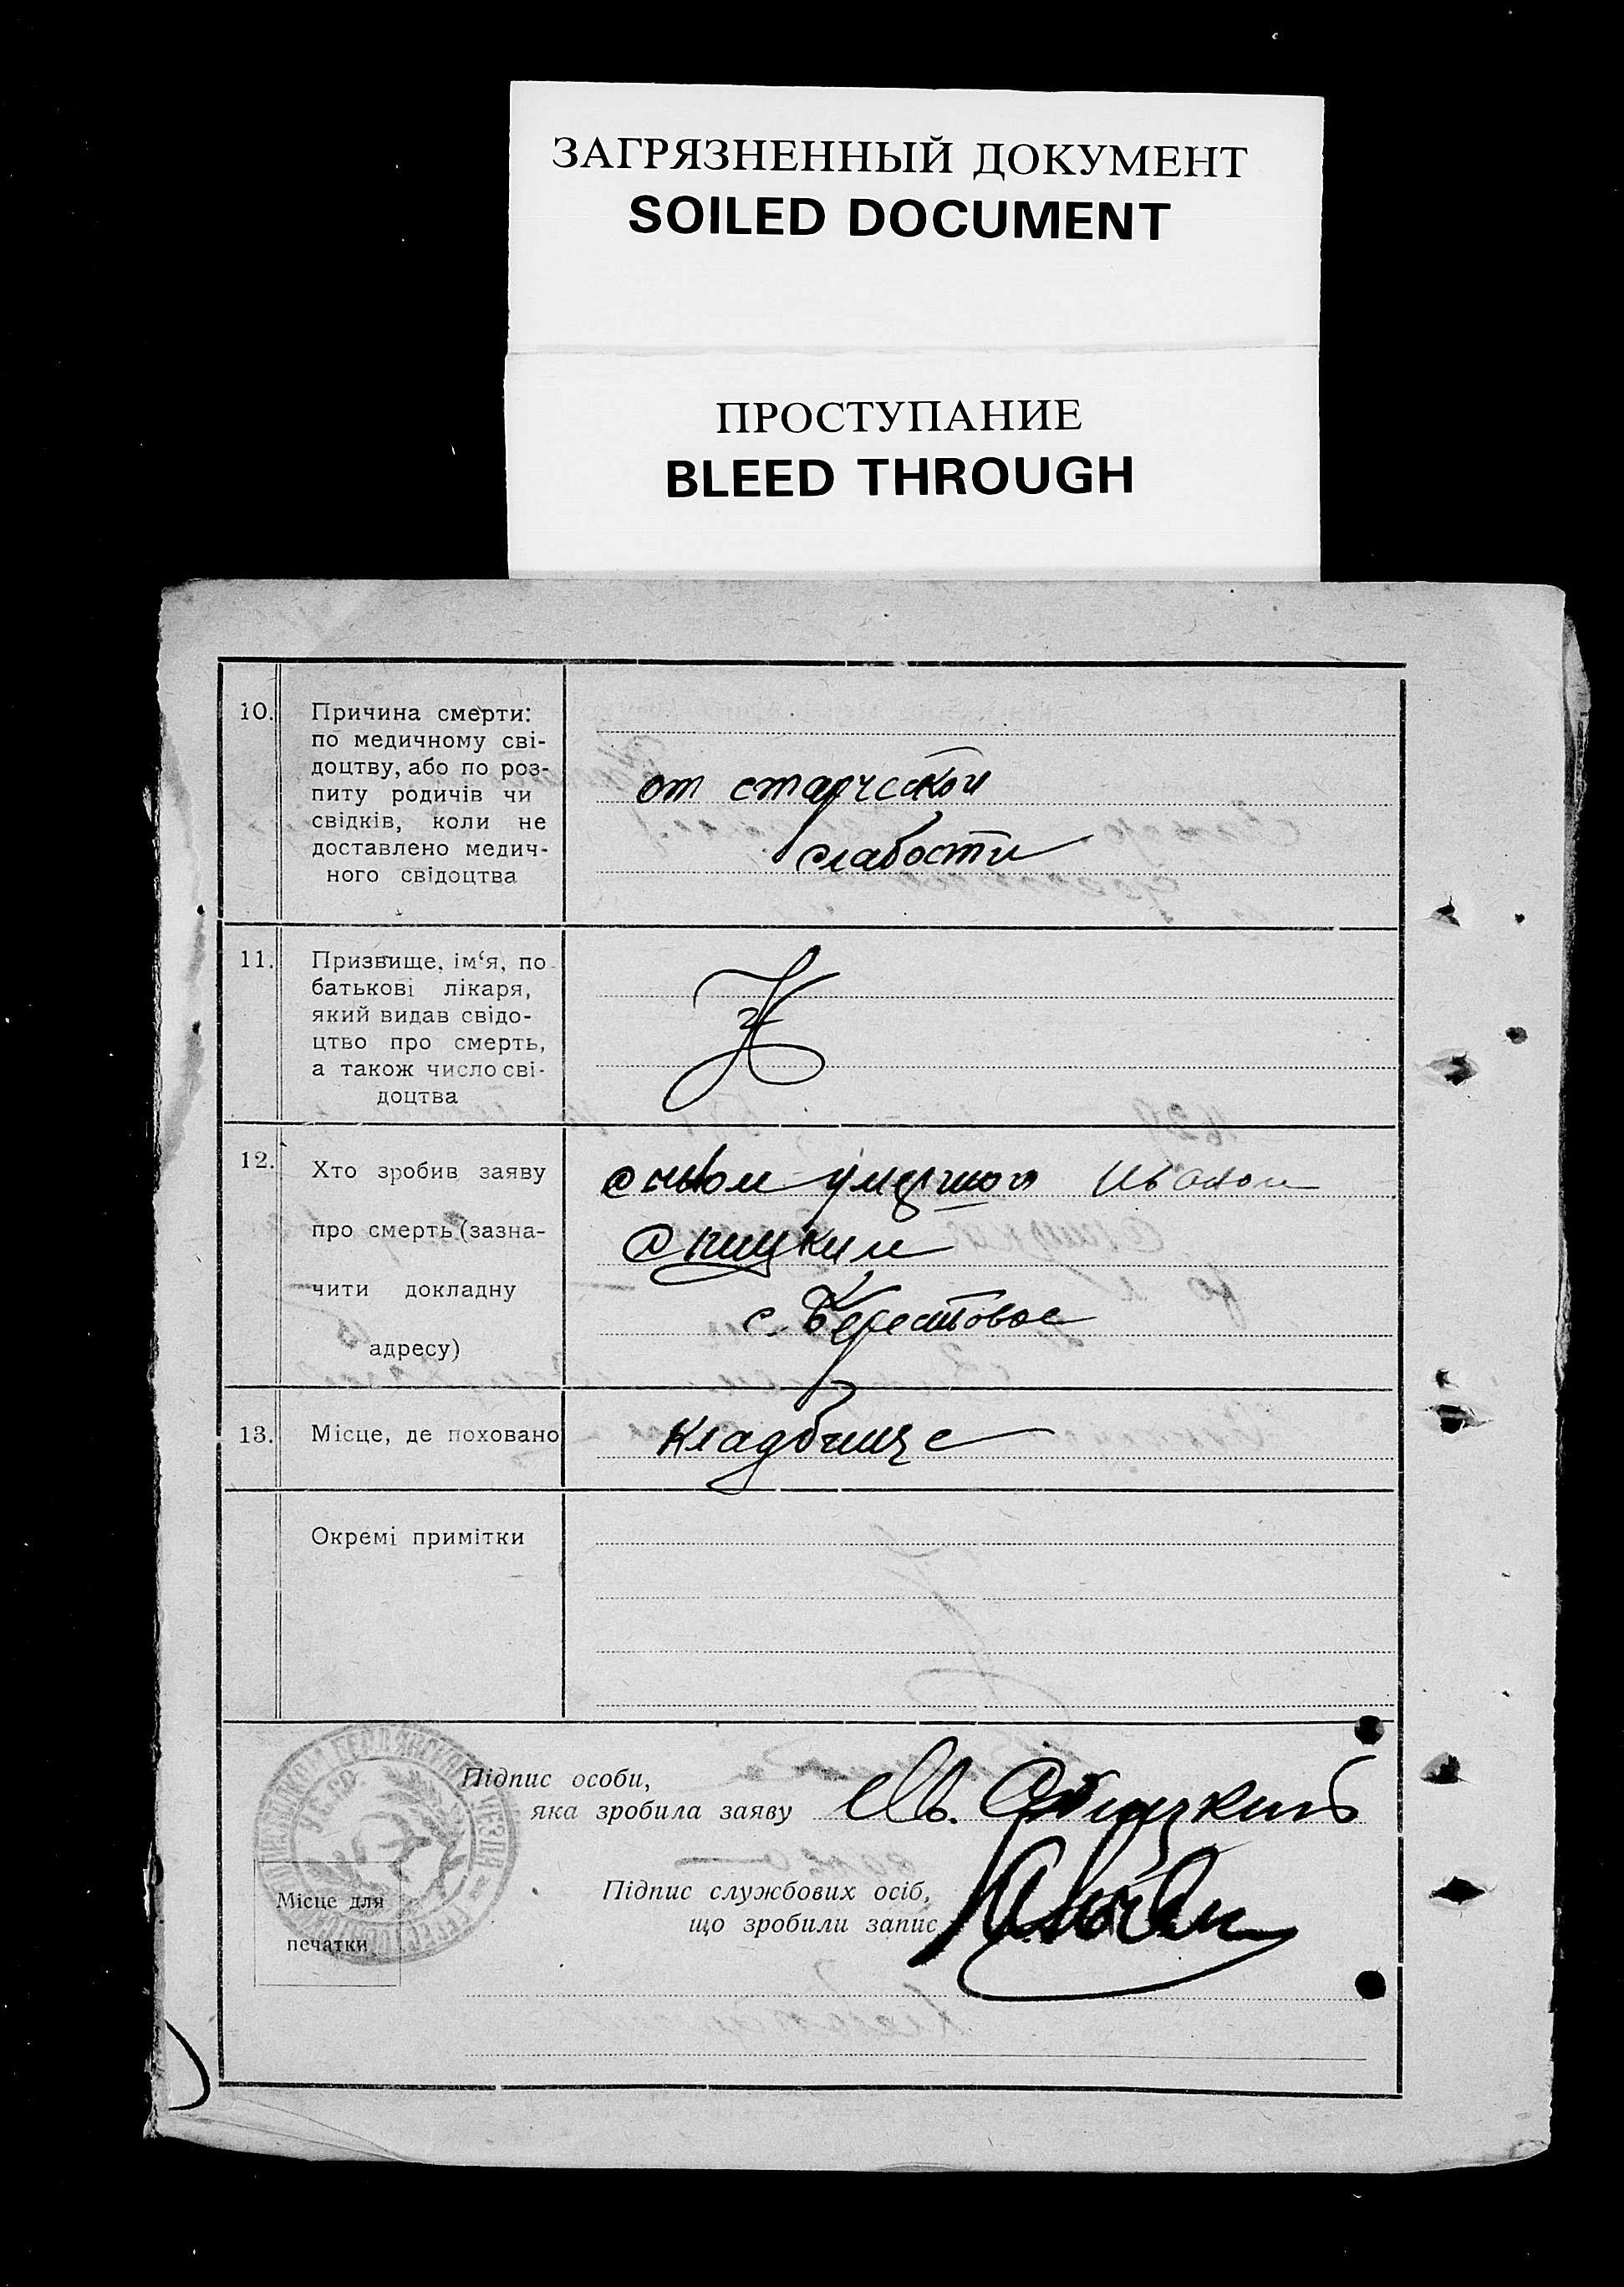 ЗАГРЯЗНЕННЫЙ ДОКУМЕНТ
SOILED DOCUMENT
ПРОСТУПАНИЕ
BLEED THROUGH
10. Причина смерти:
по медичному сві-
доцтву, або по роз-
питу родичів чи
свідків, коли не
доставлено медич-
ного свідоцтва
от старческой
слабости
11. Призвище, ім‘я, по
батькові лікаря,
який видав свідо-
цтво про смерть,
а також число сві-
доцтва
12. Хто зробив заяву
про смерть (зазна-
чити докладну
адресу)
сыном умершого Иваном
с. Берестовое
13. Місце, де поховано
кладбище
Окремі примітки
Підпис особи,
яка зробила заяву
Ив.
Підпис службових осіб,
що зробили запис
Місце для
печатки